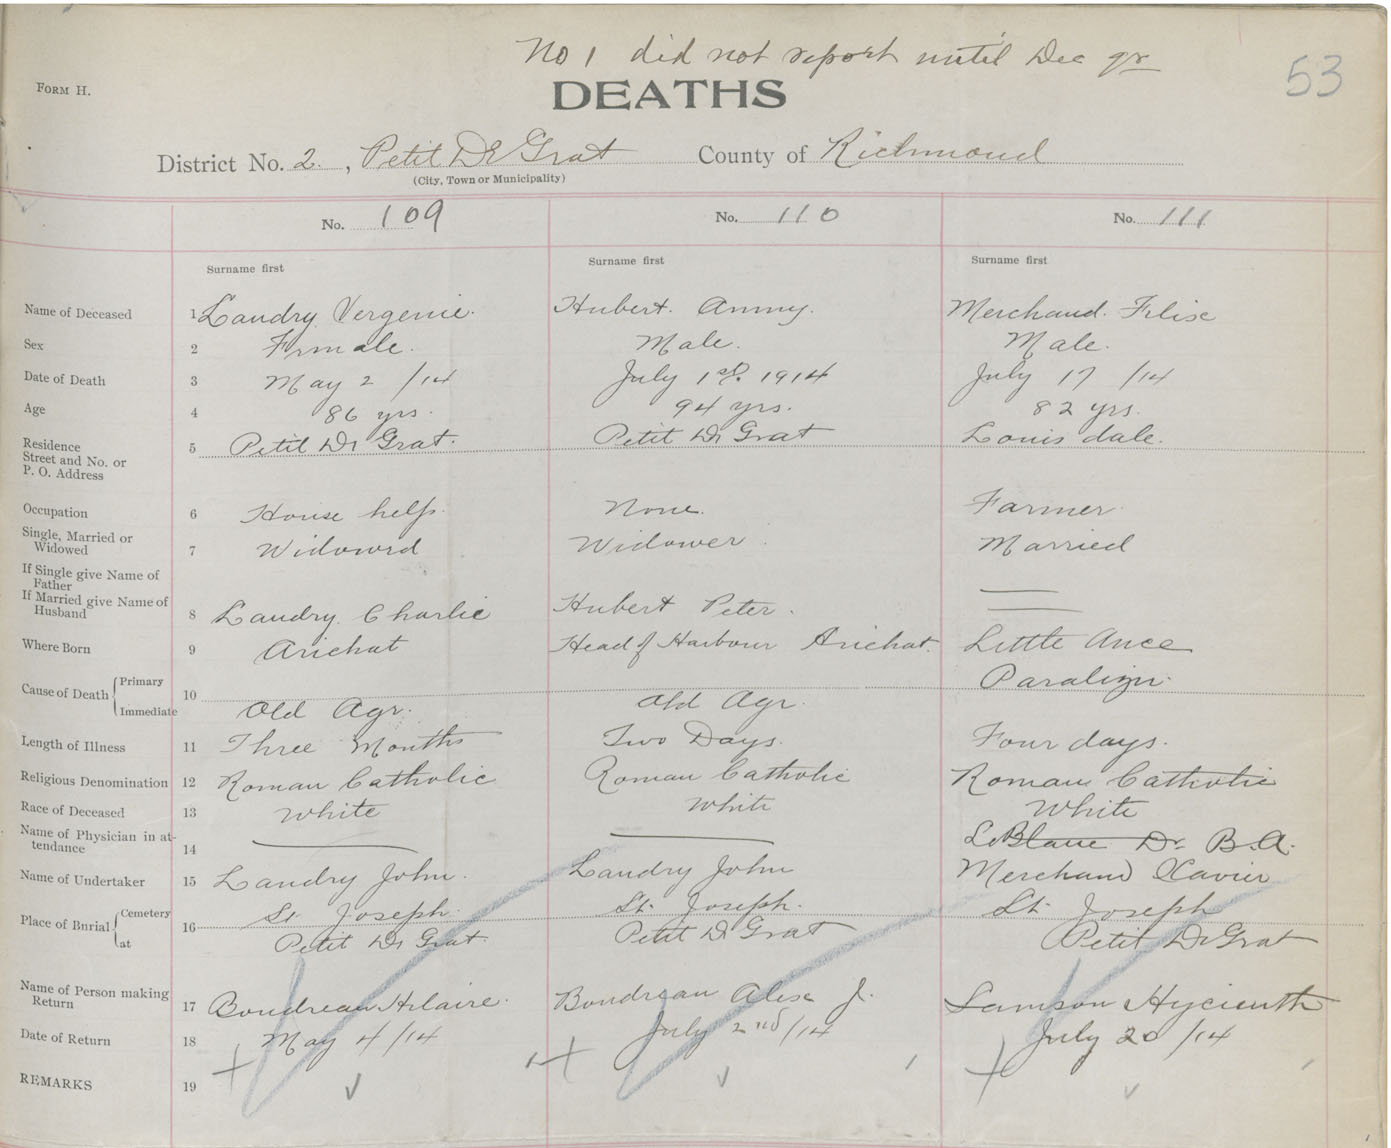 No 1 did not report until Dec qr
53
FORM H.
DEATHS
District No. 2, Petit De Grat County of Richmond
(City, Town or Municipality)
No. 109 No. 110 No. 111
Surname first Surname first Surname first
Name of Deceased 1 Landry Vergenie. Hubert. Ammy. Merchand. Felise
Sex 2 Female. Male. Male.
Date of Death 3 May 2 /14 July 1st. 1914 July 17 /14
Age 4 86 yrs. 94 yrs. 82 yrs.
Residence
Street and No. or
P. O. Address
5 Petit De Grat. Petit De Grat Louis dale.
Occupation 6 House help. None. Farmer
Single, Married or
Widowed 7 Widowed Widower. Married
If Single give Name of
Father
If Married give Name of
Husband 8 Landry. Charlie Hubert Peter.
Where Born 9 Arichat Head of Harbour Arichat. Little Ance
Cause of Death Primary Paralizn.
Immediate 10 Old Age. Old Age.
Length of Illness 11 Three Months Two Days. Four days.
Religious Denomination 12 Roman Catholic Roman Catholic Roman Catholic
Race of Deceased 13 White White White
Name of Physician in at-
tendance 14 LeBlanc Dr B.A.
Name of Undertaker 15 Landry John. Landry John Merchand Xavier
Place of Burial Cemetery 16 St. Joseph. St. Joseph. St. Joseph
at Petit De Grat Petit D Grat Petit De Grat
Name of Person making
Return 17 Boudreau Hilaire. Boudreau Alex J. Samson Hycienth
Date of Return 18 May 4/14 July 2nd/14 July 20 /14
REMARKS 19